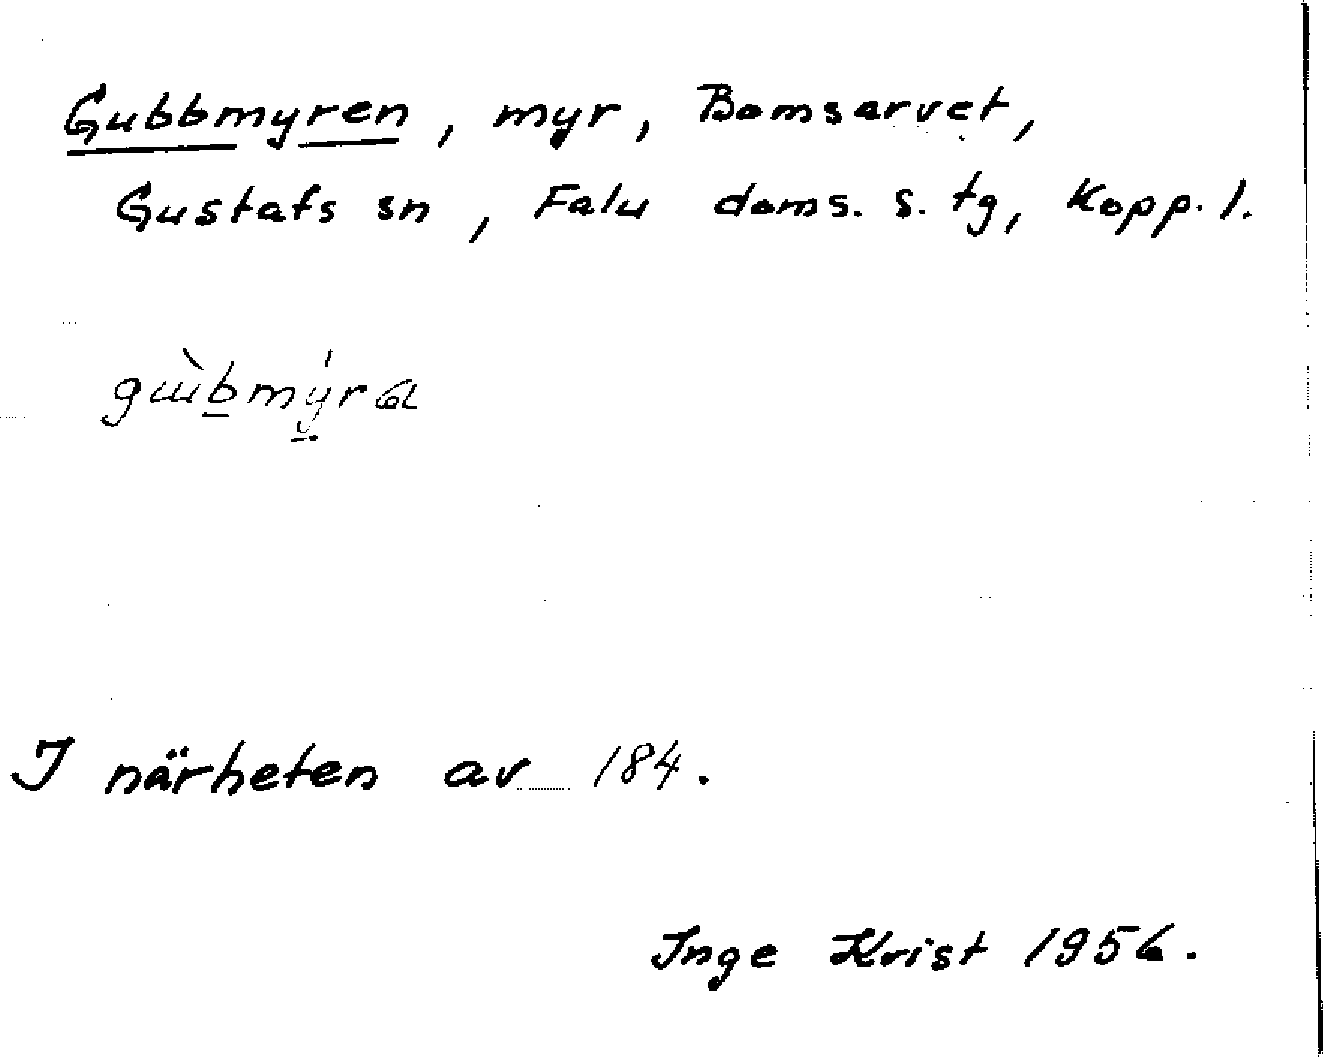 Gubbmyren, myr, Bomsarvet,
Gustafs sn, Falu doms. s. tg, Kopp. l.
I närheten av 184.
Inge Krist 1956.